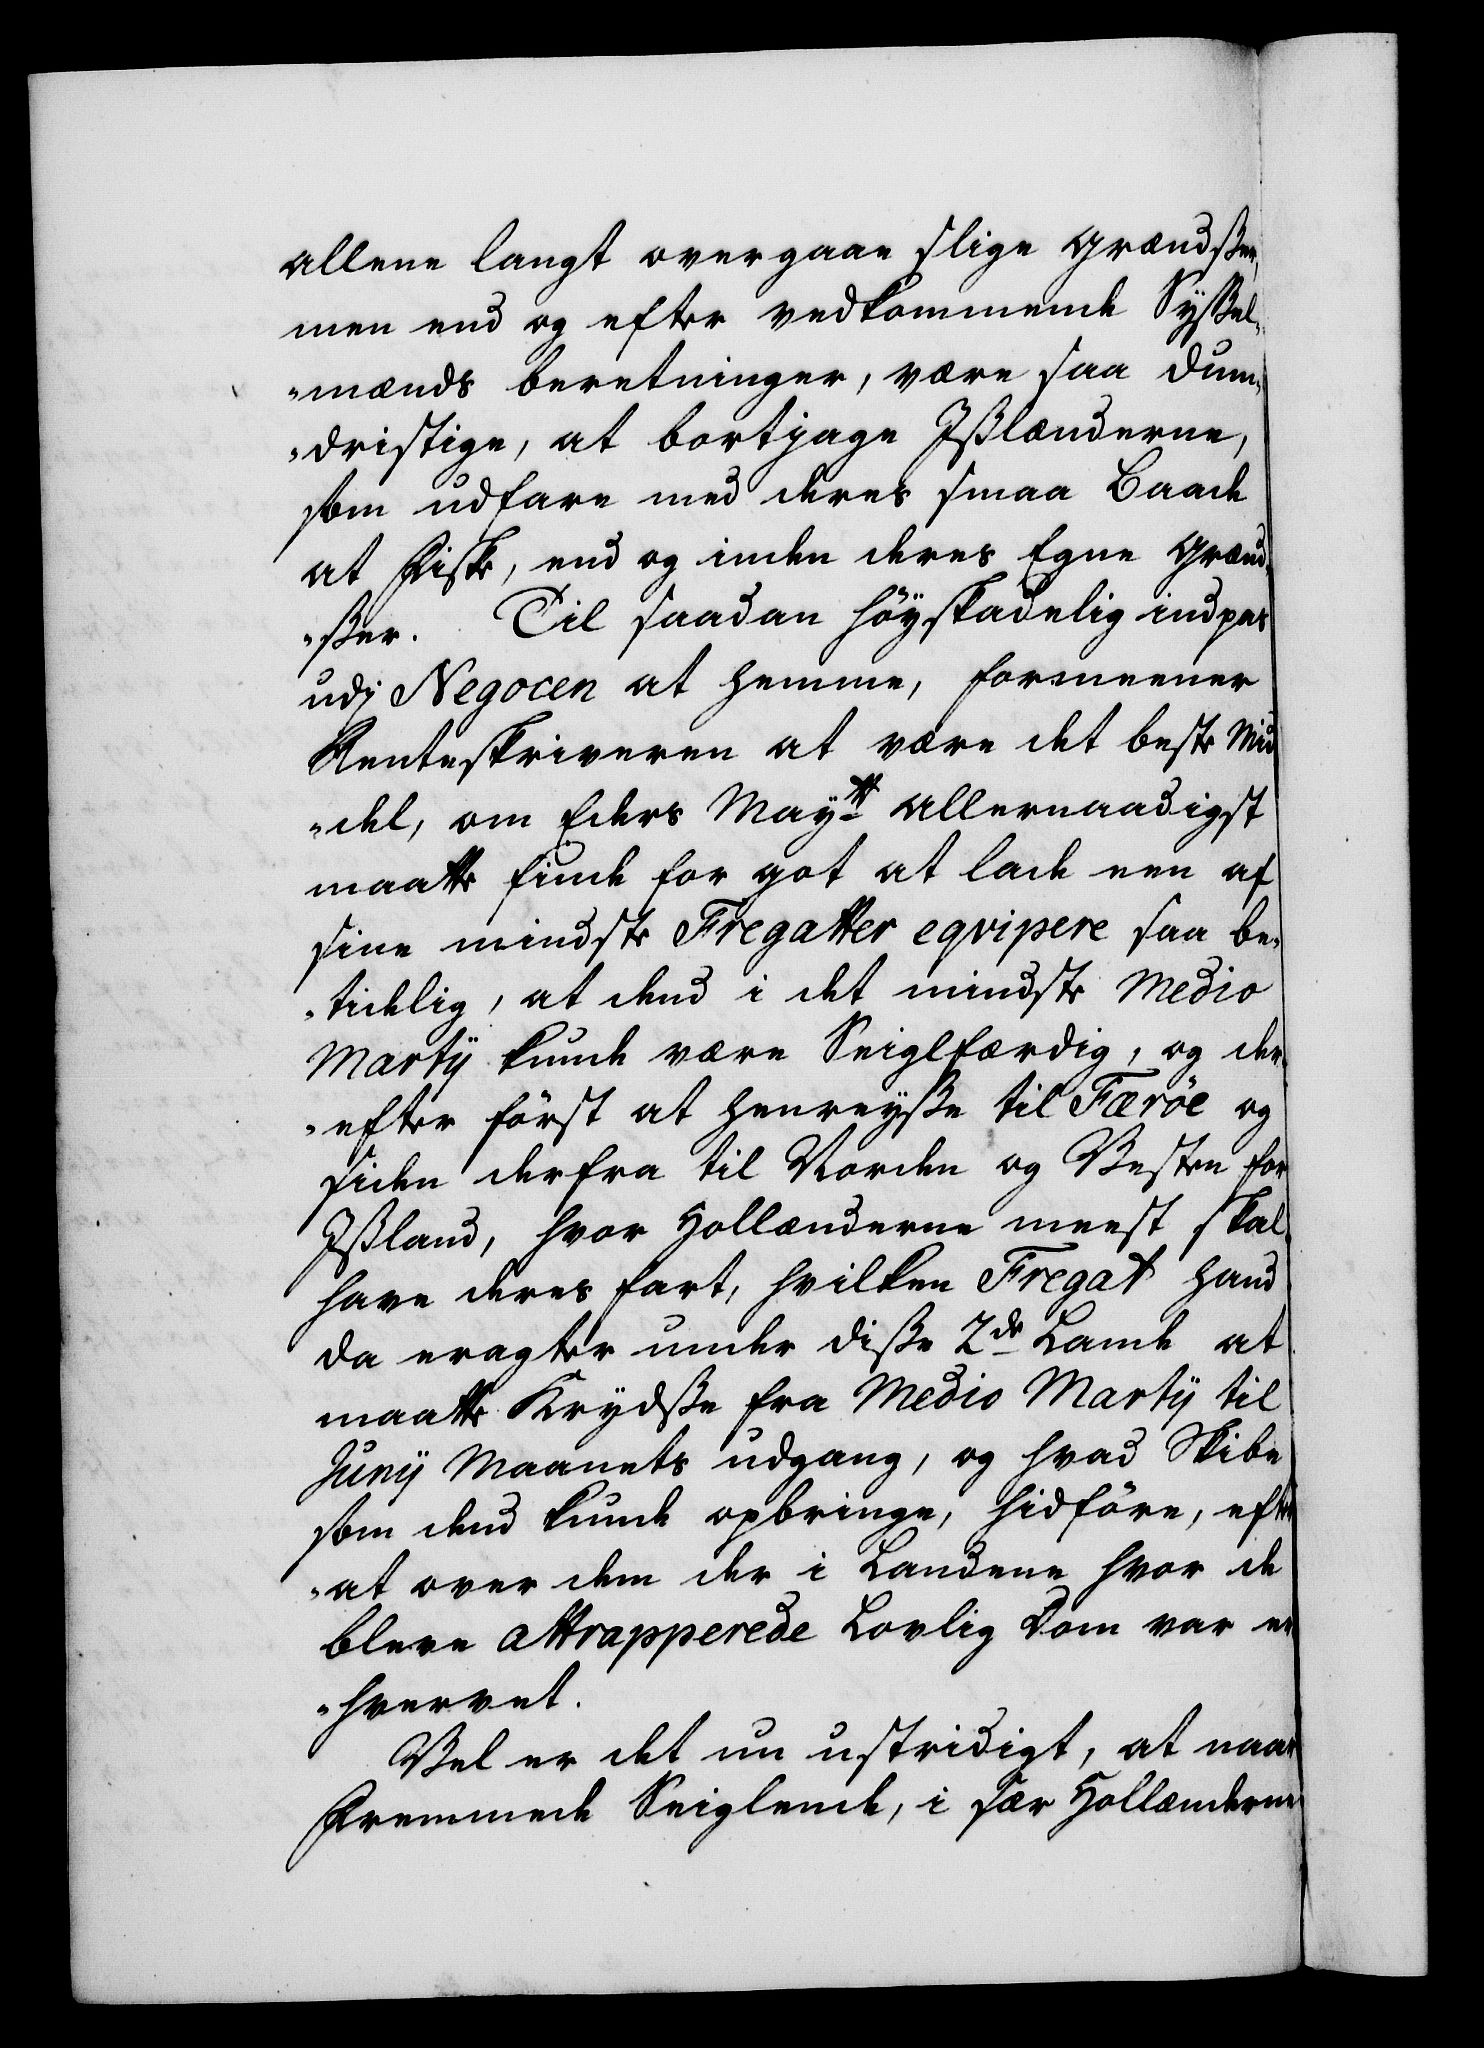 allene langt overgaae slige Grændßer,
men end og efter vedkommende Sÿßel-
-mænds beretninger, være saa dum-
-dristige, at bortjage Ißlænderne,
som udfare med deres smaa Baade
at Fiske, end og inden deres Egne Grænd-
-ßer. Til saadan höÿskadelig indpas
udj Negocen at hemme, formeener
Renteskriveren at være det beste Mid
-del, om Eders Maÿtt allernaadigst
maatte finde for got at lade een af
sine mindste Fregatter eqvipere saa be-
-tidelig, at dend i det mindste Medio
Martÿ kunde være Seiglfærdig, og der-
-efter först at henreÿße til Færöe og
siden derfra til Norden og Vesten for
Ißland, hvor Hollænderne meest skal
have deres fart, hvilken Fregat hand
da eragter under diße 2de Lande at
maatte Krÿdße fra Medio Martÿ til
Junÿ Maanets udgang, og hvad Skibe
som dend kunde opbringe, hidföre, efter
-at over dem der i Landene hvor de
bleve attrapperede Lovlig Dom var er
-hvervet.
Vel er det nu ustridigt, at naar
Fremmede Seiglende, i sær Hollænderne